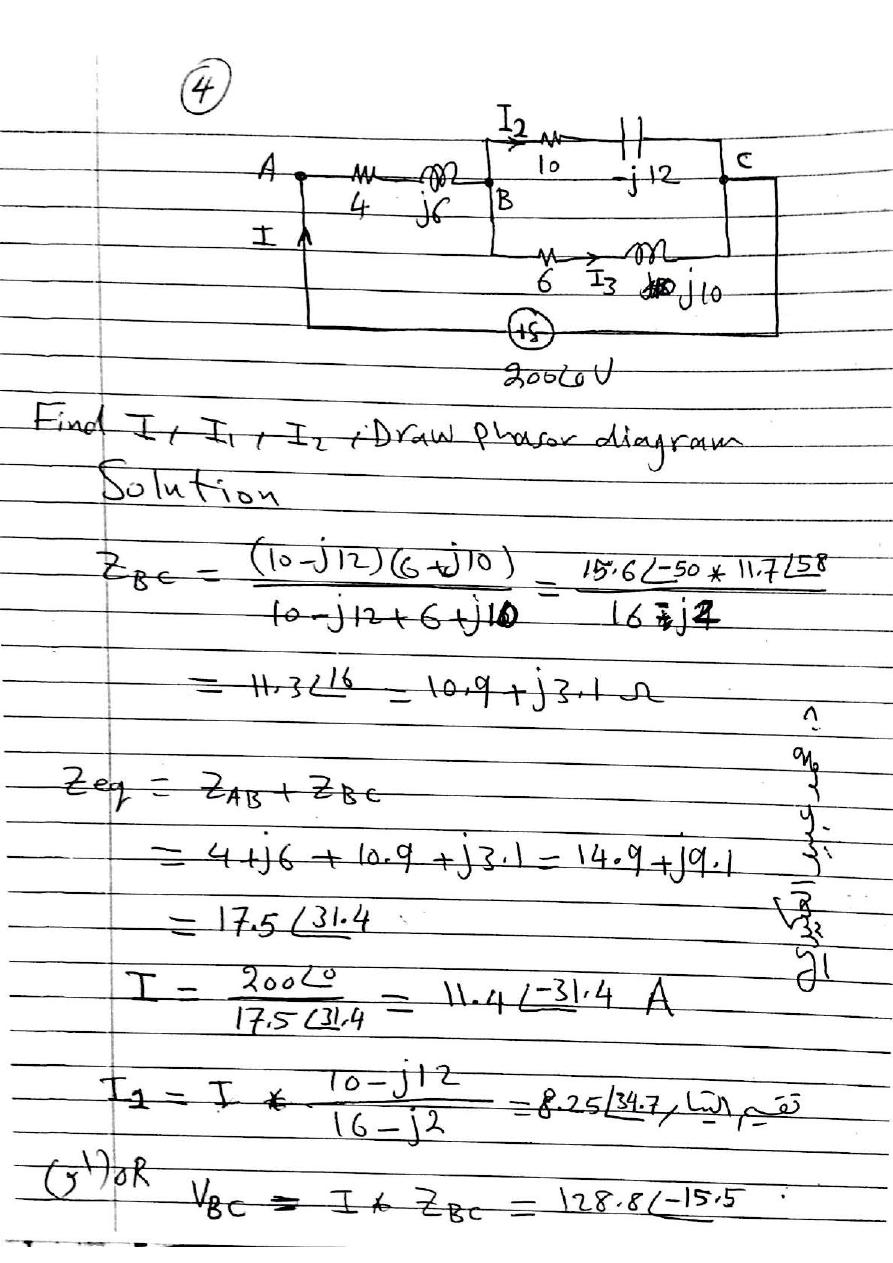 4
I2
A 10 -j12 C
4 j6 B
I
6 I3 j10
200∠0 V
Find I, I1, I2, Draw phasor diagram
Solution
ZBC = (10-j12)(6+j10) / 10-j12+6+j10 = 15.6∠-50 * 11.7∠58 / 16-j2
= 11.3∠16 = 10.9+j3.1 Ω
Zeq = ZAB + ZBC
= 4+j6 + 10.9+j3.1 = 14.9+j9.1
= 17.5∠31.4
I = 200∠0 / 17.5∠31.4 = 11.4∠-31.4 A
I1 = I * 10-j12 / 16-j2 = 8.25∠34.7, تقسيم التيار
(او) OR VBC = I * ZBC = 128.8∠-15.5